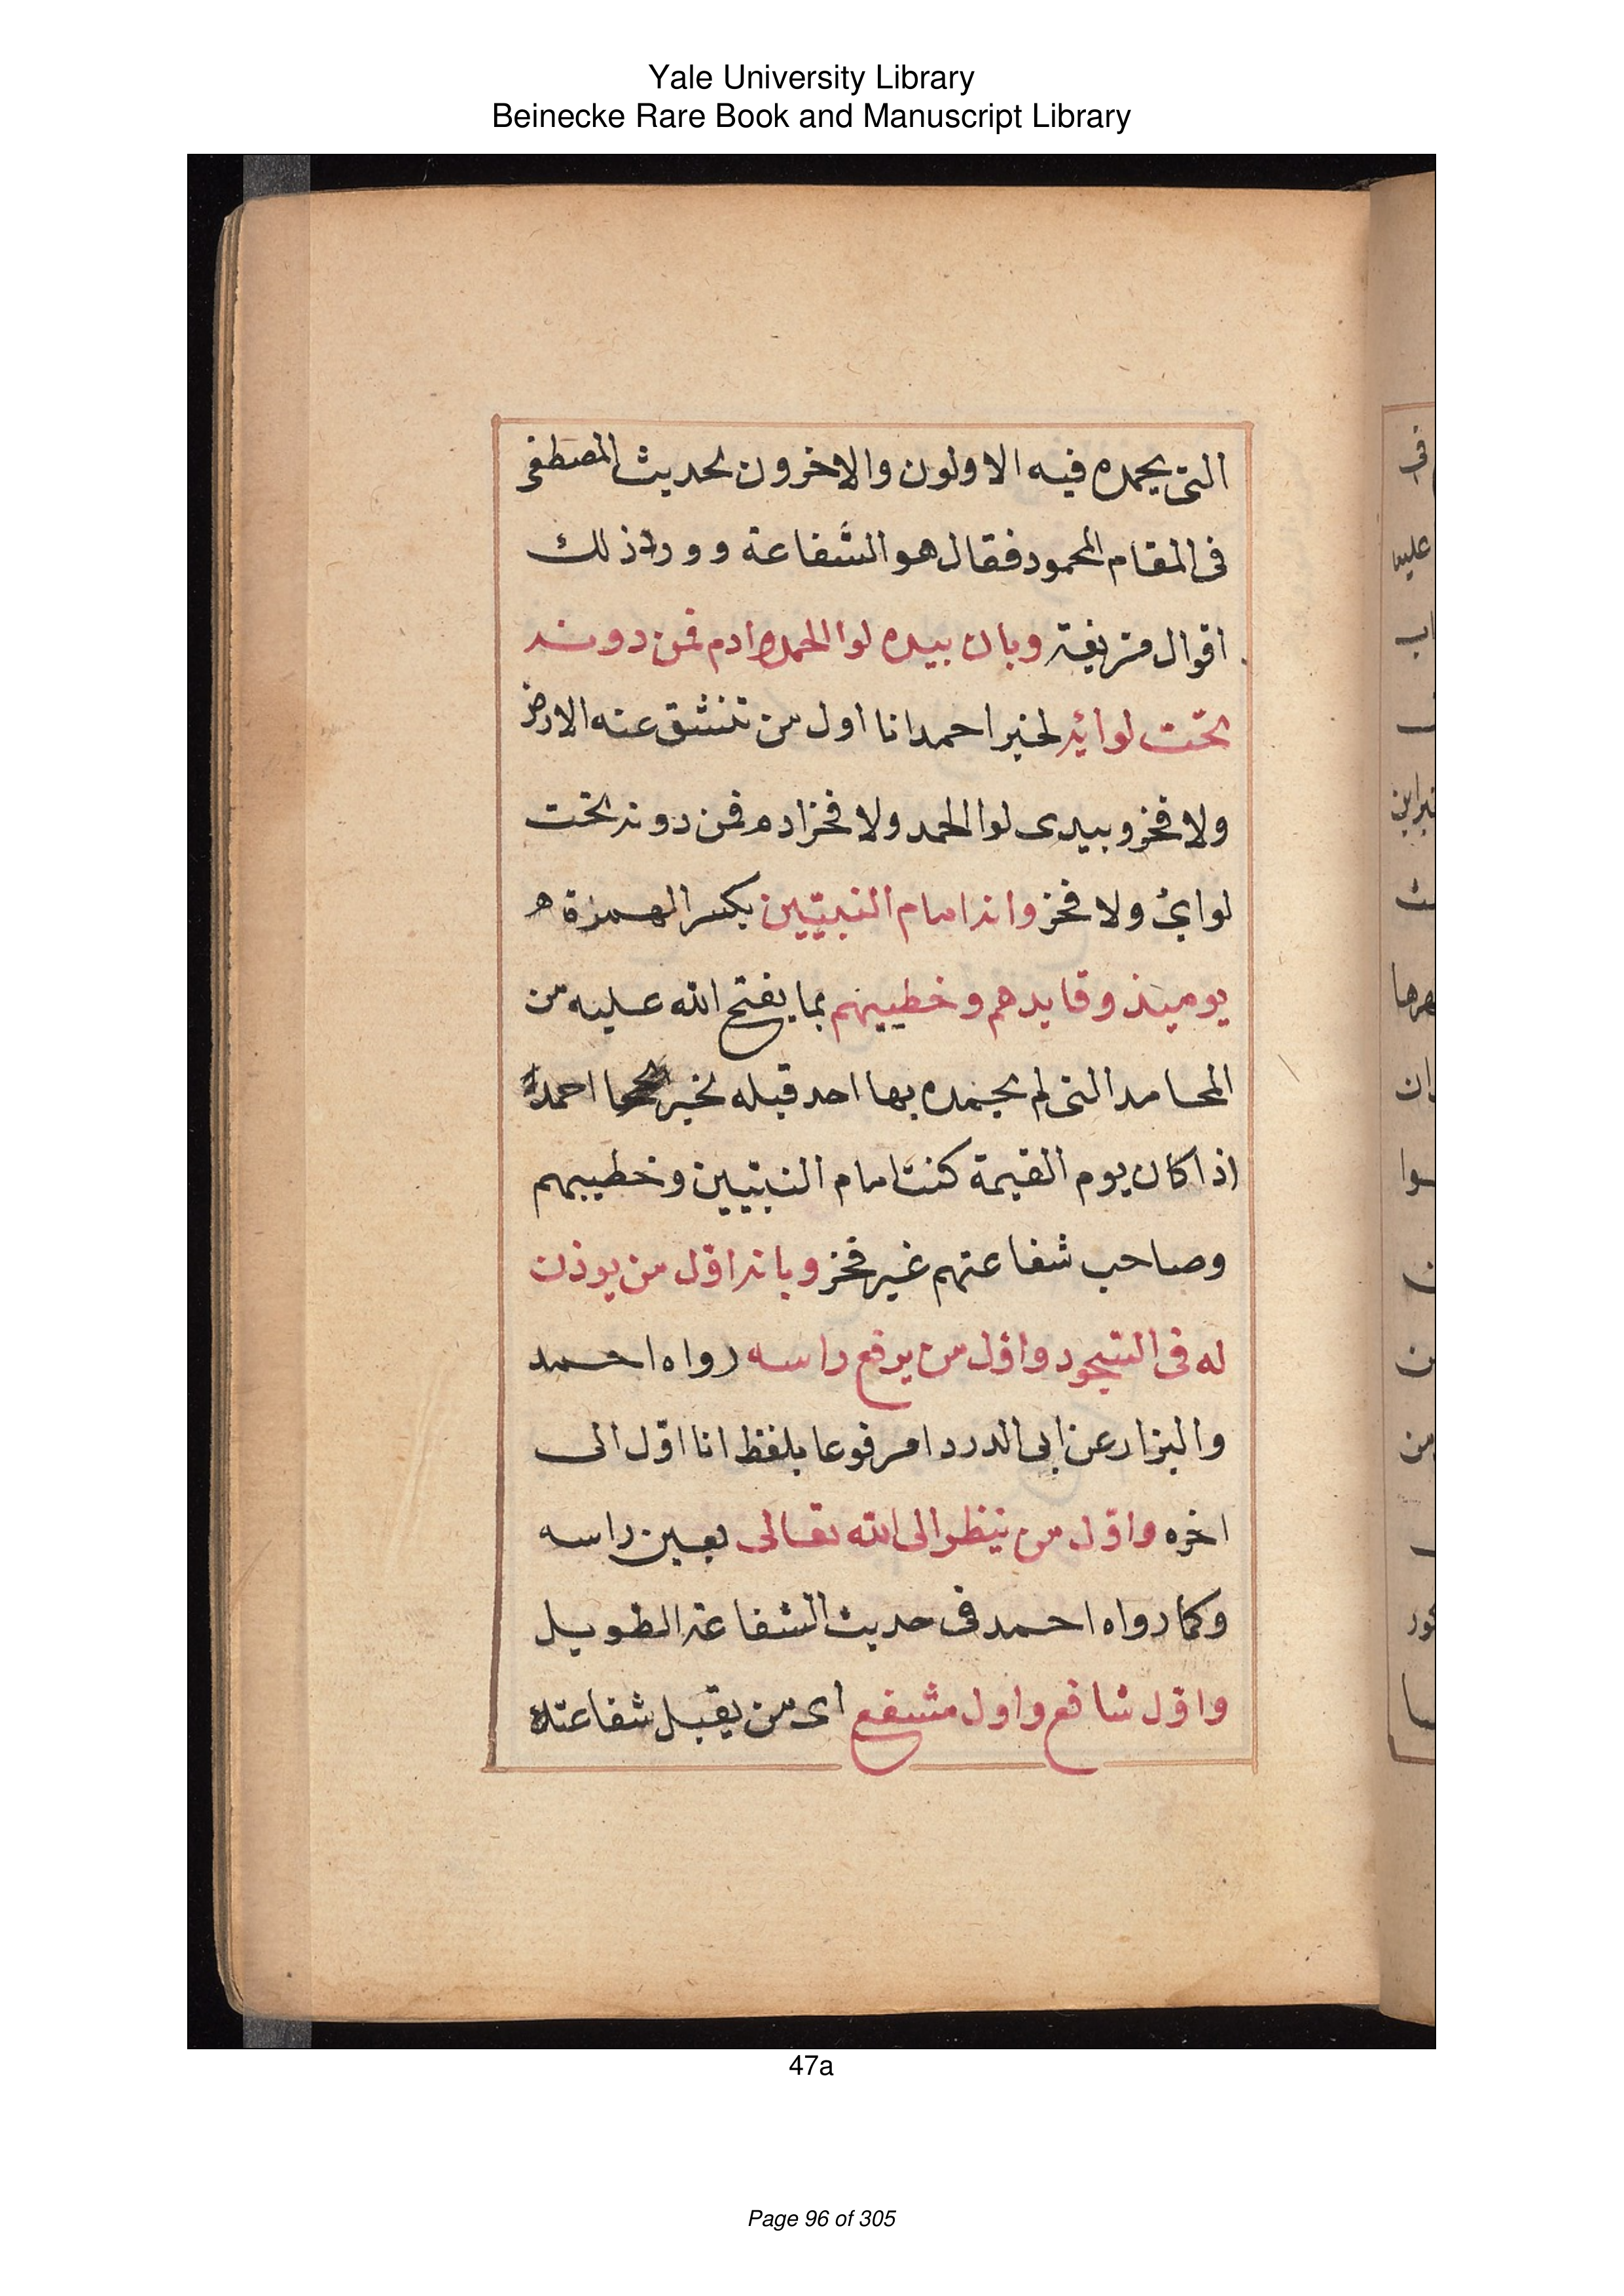 Yale University Library
Beinecke Rare Book and Manuscript Library
التى يحمده فيه الاولون والاخرون لحديث المصطفى
فى المقام المحمود فقال هو الشفاعة وورد ذلك
اقوال مزيفة وبان بيده لوا الحمد وادم فمن دونه
تحت لوائه لخبر احمد انا اول من تنشق عنه الارض
ولا فخر وبيدى لوا الحمد ولا فخر ادم فمن دونه تحت
لوائى ولا فخر وانه امام النبيّين بكسر الهمزة
يوميذ وقايدهم وخطيبهم بما يفتح الله عليه من
المحامد التى لم يحمده بها احد قبله لخبر احمد
اذا كان يوم القيمة كنت امام النبيّين وخطيبهم
وصاحب شفاعتهم غير فخر وبانه اوّل من يوذن
له فى السّجود واوّل من يرفع راسه رواه احمد
والبزار عن ابى الدردا مرفوعا بلفظ انا اوّل الى
اخره واوّل من ينظر الى الله تعالى بعين راسه
وكما رواه احمد فى حديث الشفاعة الطويل
واوّل شافع واول مشفع اى من يقبل شفاعته
47a
Page 96 of 305